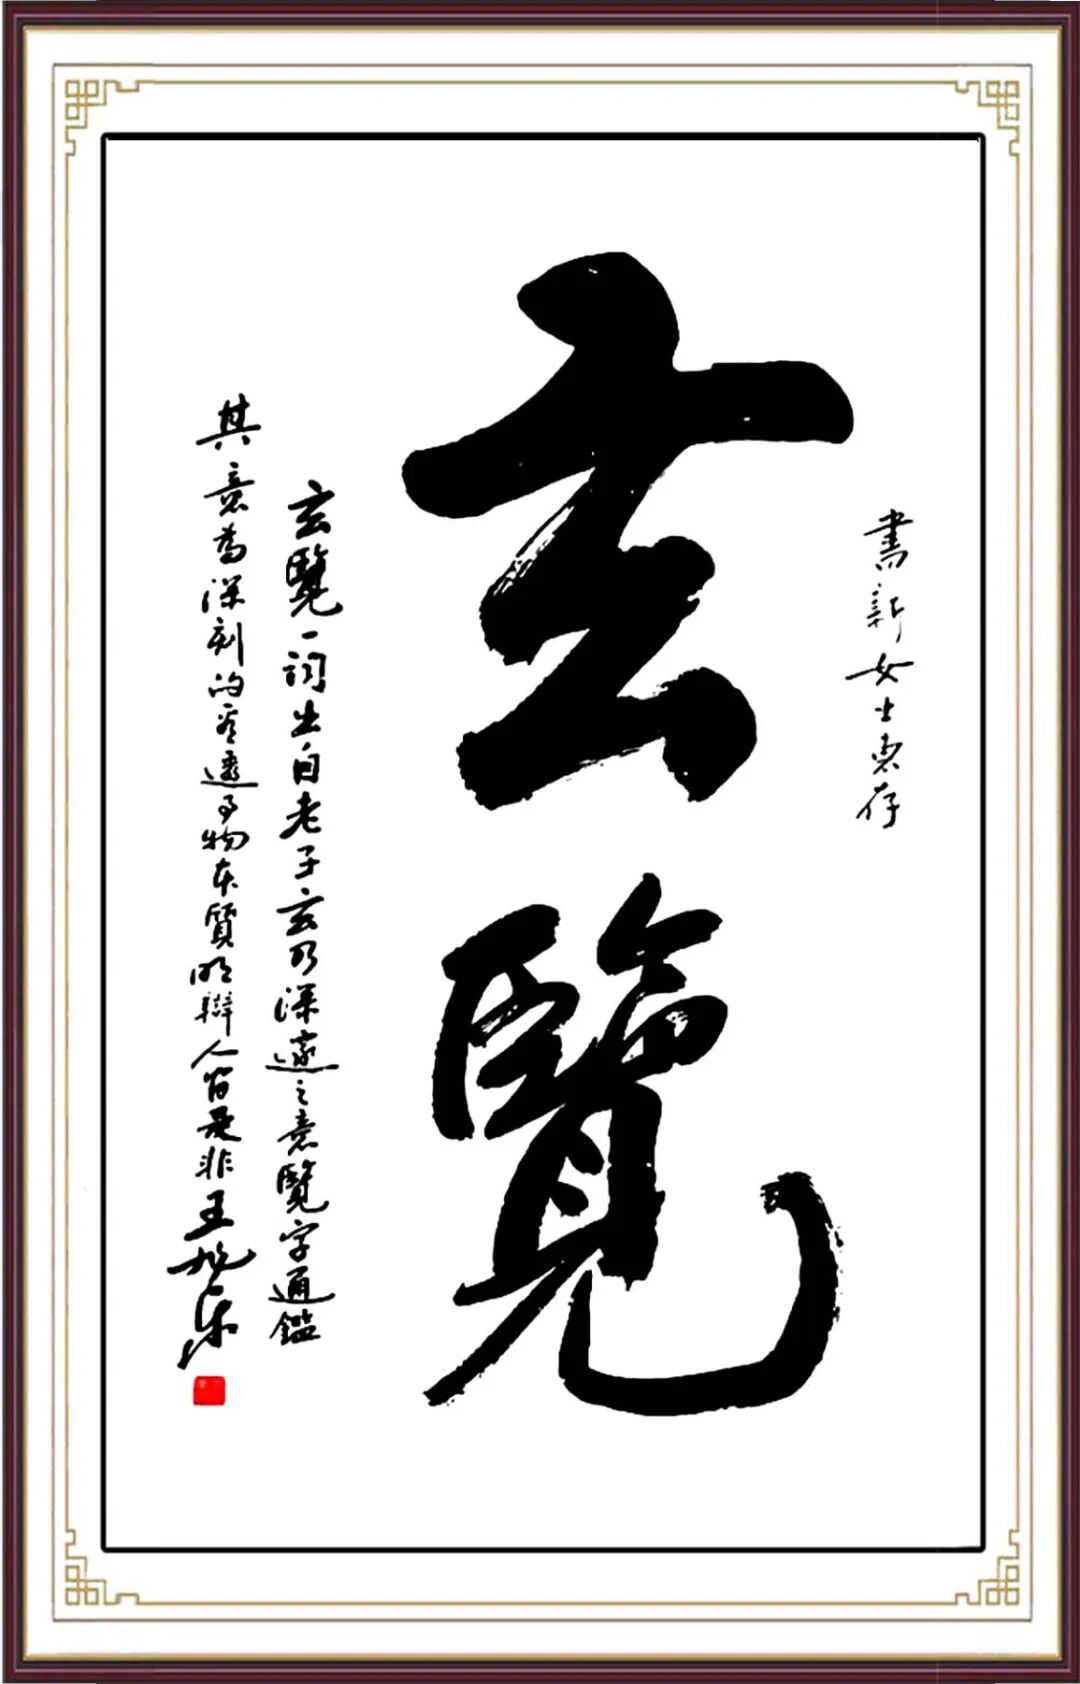 書新女士惠存
玄覽
玄覽一詞出自老子玄乃深邃之意覽字通鑑
其意為深刻的看透事物本質明辯人間是非王旭